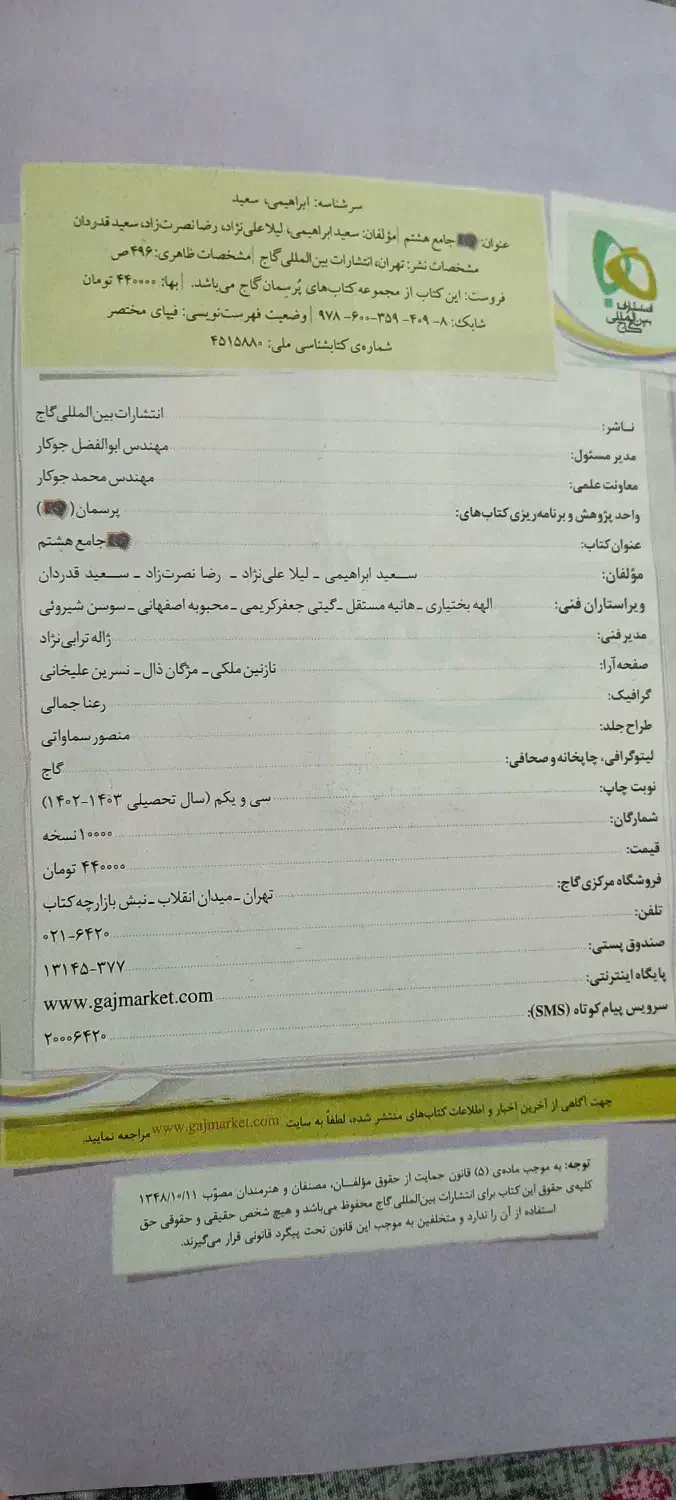 سرشناسه: ابراهیمی، سعید
عنوان: جامع هشتم | مؤلفان: سعید ابراهیمی، لیلا علی‌نژاد، رضا نصرت‌زاد، سعید قدردان
مشخصات نشر: تهران، انتشارات بین‌المللی گاج | مشخصات ظاهری: ۴۹۶ ص
فروست: این کتاب از مجموعه کتاب‌های پُرسِمان گاج می‌باشد. | بها: ۴۴۰۰۰۰ تومان
شابک: ۸-۴۰۹-۳۵۹-۶۰۰-۹۷۸ | وضعیت فهرست‌نویسی: فیپای مختصر
شماره‌ی کتابشناسی ملی: ۴۵۱۵۸۸۰
انتشارات بین‌المللی گاج
ناشر: انتشارات بین‌المللی گاج
مدیر مسئول: مهندس ابوالفضل جوکار
معاونت علمی: مهندس محمد جوکار
واحد پژوهش و برنامه‌ریزی کتاب‌های: پرسمان ( )
عنوان کتاب: جامع هشتم
مؤلفان: سعید ابراهیمی - لیلا علی‌نژاد - رضا نصرت‌زاد - سعید قدردان
ویراستاران فنی: الهه بختیاری - هانیه مستقل - گیتی جعفرکریمی - محبوبه اصفهانی - سوسن شیروئی
مدیر فنی: ژاله ترابی‌نژاد
صفحه‌آرا: نازنین ملکی - مژگان ذال - نسرین علیخانی
گرافیک: رعنا جمالی
طراح جلد: منصور سماواتی
لیتوگرافی، چاپخانه و صحافی: گاج
نوبت چاپ: سی و یکم (سال تحصیلی ۱۴۰۳-۱۴۰۲)
شمارگان: ۱۰۰۰۰ نسخه
قیمت: ۴۴۰۰۰۰ تومان
فروشگاه مرکزی گاج: تهران - میدان انقلاب - نبش بازارچه کتاب
تلفن: ۰۲۱-۶۴۲۰
صندوق پستی: ۱۳۱۴۵-۳۷۷
پایگاه اینترنتی: www.gajmarket.com
سرویس پیام کوتاه (SMS): ۲۰۰۰۶۴۲۰
جهت آگاهی از آخرین اخبار و اطلاعات کتاب‌های منتشر شده، لطفاً به سایت www.gajmarket.com مراجعه نمایید.
توجه: به موجب ماده‌ی (۵) قانون حمایت از حقوق مؤلفان، مصنفان و هنرمندان مصوّب ۱۳۴۸/۱۰/۱۱
کلیه‌ی حقوق این کتاب برای انتشارات بین‌المللی گاج محفوظ می‌باشد و هیچ شخص حقیقی و حقوقی حق
استفاده از آن را ندارد و متخلفین به موجب این قانون تحت پیگرد قانونی قرار می‌گیرند.